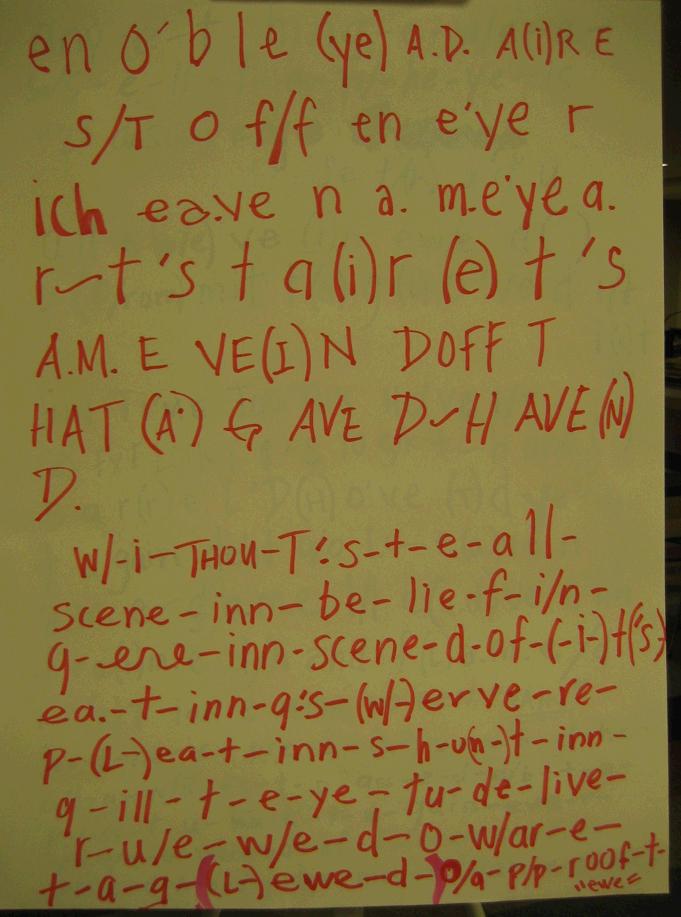 en o' b l e (ye) A.D. A(i)R E
S/T o f/f en e'ye r
ich ea.ve n a. m.e'ye a.
r~t's t a(i)r (e) t's
A.M. E VE(I)N DOFF T
HAT (A') G AVE D~H AVE(N)
D.
w/-i-THOU-T's-t-e-all-
scene-inn-be-lie-f-i/n-
g-ere-inn-scene-d-of-(-i-)t('s)
ea.-t-inn-g's-(w/-)erve-re-
p-(L-)ea-t-inn-s-h-u(n-)t-inn-
g-ill-t-e-ye-tu-de-live-
r-u/e-w/e-d-o-w/ar-e-
t-a-g-(L-)ewe-d-)o/a-p/p-roof-t-
"ewe="